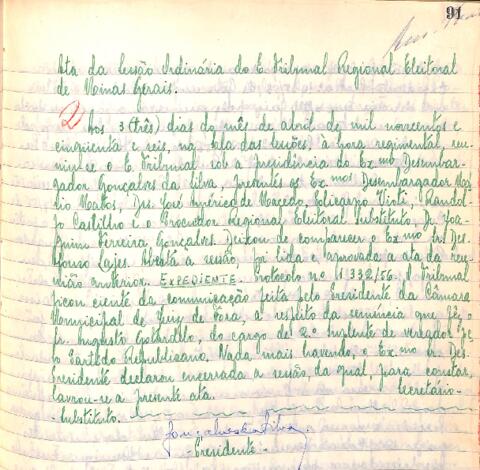 91
Ata da Sessão Ordinária do E. Tribunal Regional Eleitoral
de Minas Gerais.
Aos 3 (três) dias do mês de abril de mil novecentos e
cinquenta e seis, na sala das sessões, à hora regimental, reu-
niu-se o E. Tribunal sob a presidência do Exmo Desembar-
gador Gonçalves da Silva, presentes os Exmos Desembargador Má-
rio Matos, Drs. José Américo de Macedo, Randol-
fo Castilho e o Procurador Regional Eleitoral Substituto, Dr. Joa-
quim Ferreira Gonçalves. Deixou de comparecer o Exmo Sr. Des.
Afonso Lages. Aberta a sessão, foi lida e aprovada a ata da reu-
nião anterior. EXPEDIENTE. Protocolo nº 1332/56. O Tribunal
ficou ciente da comunicação feita pelo Presidente da Câmara
Municipal de Juiz de Fora, a respeito da renúncia que fêz o
sr. Augusto do cargo de 2º suplente de vereador pe-
lo Partido Republicano. Nada mais havendo, o Exmo Sr. Des.
Presidente declarou encerrada a sessão, da qual para constar,
lavrou-se a presente ata. Secretário-
-Substituto.
Gonçalves da Silva
-Presidente-